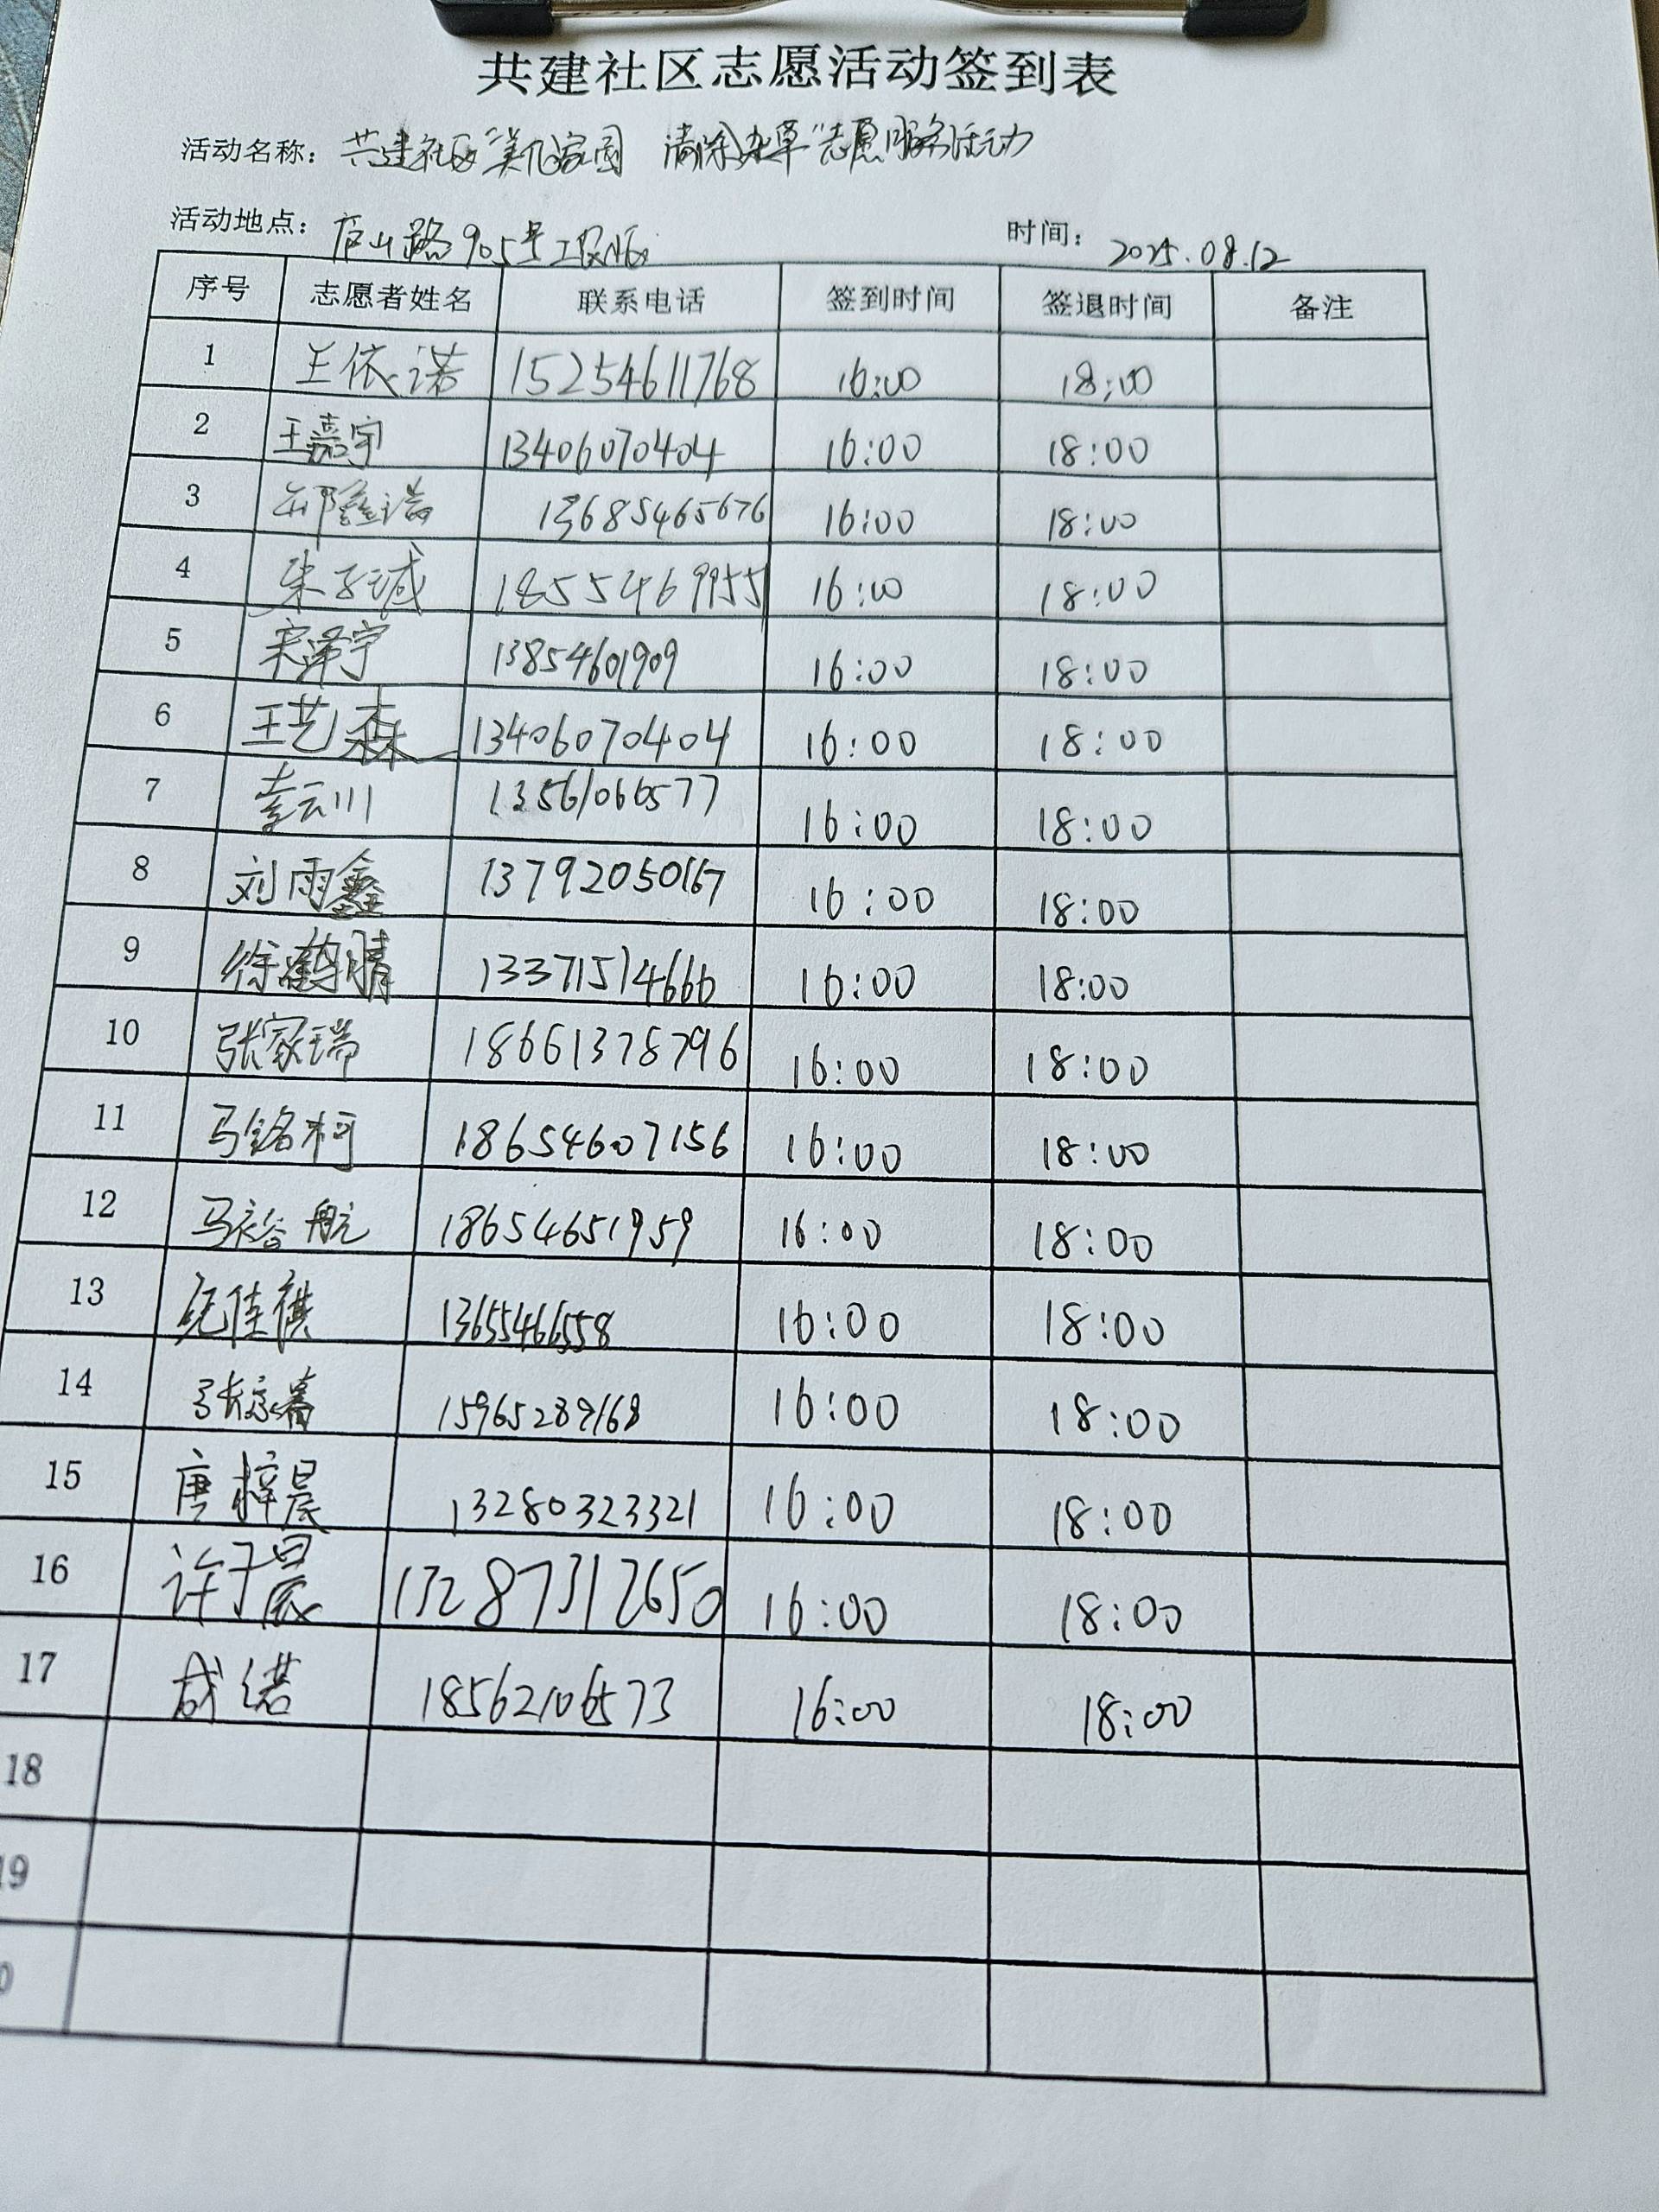 共建社区志愿活动签到表
活动名称：共建社区"美化家园 清除杂草"志愿服务活动
活动地点：庐山路905号 时间：2025.08.12
序号 志愿者姓名 联系电话 签到时间 签退时间 备注
1 王依诺 15254611768 16:00 18:00
2 王嘉宇 13406070404 16:00 18:00
3 13685465676 16:00 18:00
4 朱子诚 18554699955 16:00 18:00
5 宋泽宇 13854601909 16:00 18:00
6 王艺森 13406070404 16:00 18:00
7 李云川 13561066577 16:00 18:00
8 刘雨鑫 13792050167 16:00 18:00
9 徐鹤晴 13371514666 16:00 18:00
10 张家瑞 18661378796 16:00 18:00
11 马铭柯 18654607156 16:00 18:00
12 马裕航 18654651959 16:00 18:00
13 纪佳祺 13655466558 16:00 18:00
14 15965289168 16:00 18:00
15 唐梓晨 13280323321 16:00 18:00
16 许于晨 13287312650 16:00 18:00
17 成诺 18562106573 16:00 18:00
18
19
0